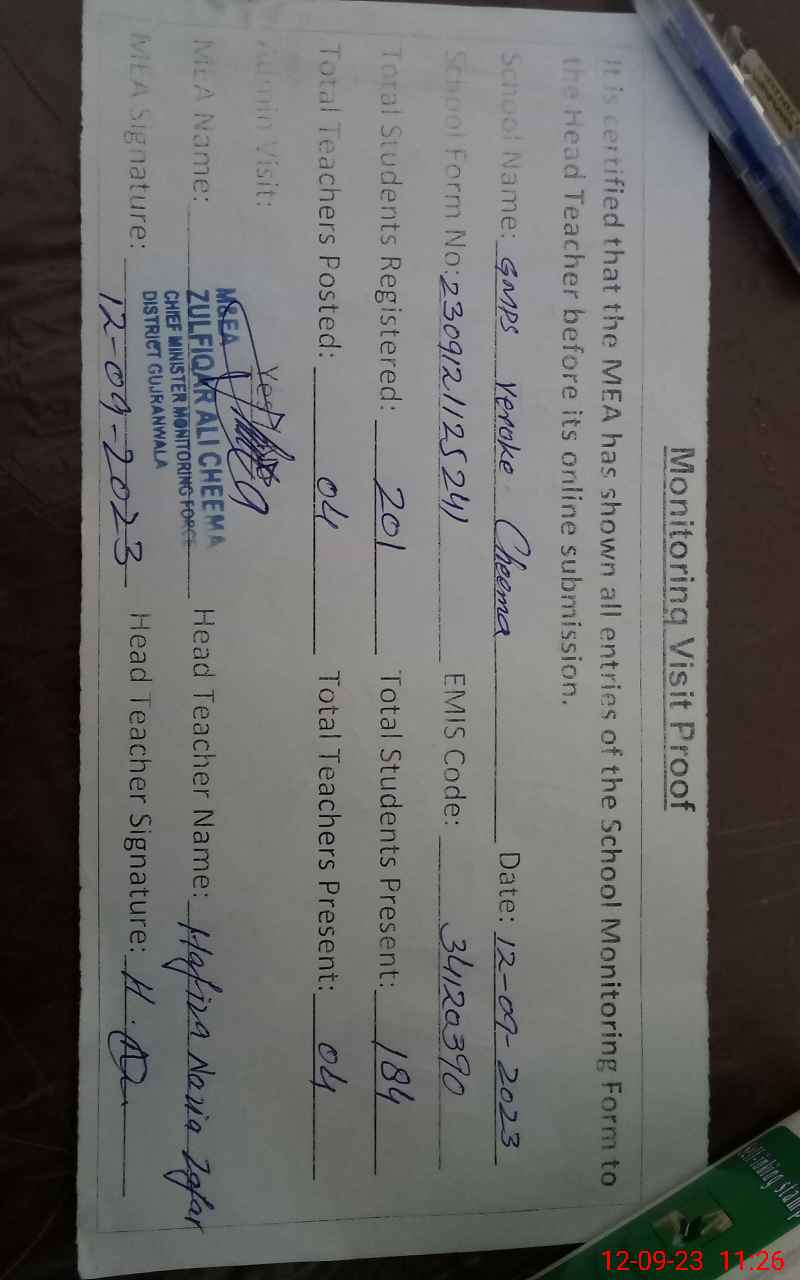 Monitoring Visit Proof
It is certified that the MEA has shown all entries of the School Monitoring Form to
the Head Teacher before its online submission.
School Name: GMPS Veroke Cheema Date: 12-09-2023
School Form No: 2309121125241 EMIS Code: 34120390
Total Students Registered: 201 Total Students Present: 184
Total Teachers Posted: 04 Total Teachers Present: 04
Admin Visit: Yes
M&EA
MEA Name: ZULFIQAR ALI CHEEMA Head Teacher Name: Hafiza Nazia Zafar
CHIEF MINISTER MONITORING FORCE
DISTRICT GUJRANWALA
MEA Signature: 12-09-2023 Head Teacher Signature: H.
12-09-23 11:26